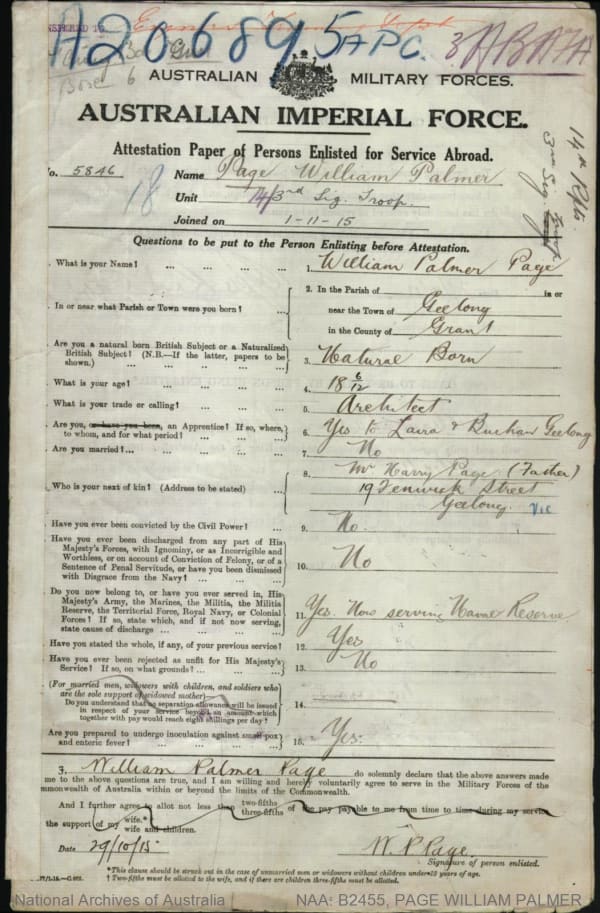 A20689 5 APC. 3 ABAFA
NSFERRED TO
Base 6
AUSTRALIAN MILITARY FORCES.
AUSTRALIAN IMPERIAL FORCE.
Attestation Paper of Persons Enlisted for Service Abroad.
14th Rfts.
3rd Sig Troop
No. 5846 Name Page William Palmer
18
Unit 14/3rd Sig. Troop.
Joined on 1-11-15
Questions to be put to the Person Enlisting before Attestation.
. What is your Name? ... ... ... ... 1. William Palmer Page
. In or near what Parish or Town were you born? ... 2. In the Parish of in or
near the Town of Geelong
in the County of Grant
. Are you a natural born British Subject or a Naturalized
British Subject? (N.B.—If the latter, papers to be
shown.) ... ... ... ... ... 3. Natural Born
. What is your age? ... ... ... ... 4. 18 6/12
. What is your trade or calling? ... ... ... 5. Architect
. Are you, or have you been, an Apprentice? If so, where,
to whom, and for what period? ... ... ... 6. Yes to Laird & Buchan Geelong
. Are you married?... ... ... ... ... 7. No
. Who is your next of kin? (Address to be stated) ... 8. Mr Harry Page (Father)
19 Fenwick Street
Geelong. Vic
Have you ever been convicted by the Civil Power? ... 9. No.
Have you ever been discharged from any part of His
Majesty's Forces, with Ignominy, or as Incorrigible and
Worthless, or on account of Conviction of Felony, or of a
Sentence of Penal Servitude, or have you been dismissed
with Disgrace from the Navy? ... ... ... 10. No
Do you now belong to, or have you ever served in, His
Majesty's Army, the Marines, the Militia, the Militia
Reserve, the Territorial Force, Royal Navy, or Colonial
Forces? If so, state which, and if not now serving,
state cause of discharge ... ... ... ... 11. Yes. Now serving Naval Reserve
Have you stated the whole, if any, of your previous service? 12. Yes
Have you ever been rejected as unfit for His Majesty's
Service? If so, on what grounds? ... ... ... 13. No
(For married men, widowers with children, and soldiers who
are the sole support of widowed mother)—
Do you understand that no separation allowance will be issued
in respect of your service beyond an amount which
together with pay would reach eight shillings per day? 14.
Are you prepared to undergo inoculation against small pox
and enteric fever? ... ... ... ... 15. Yes.
I, William Palmer Page do solemnly declare that the above answers made
me to the above questions are true, and I am willing and hereby voluntarily agree to serve in the Military Forces of the
mmonwealth of Australia within or beyond the limits of the Commonwealth.
And I further agree to allot not less than two-fifths
three-fifths of the pay payable to me from time to time during my service
the support of my wife.*
wife and children.
Date 29/10/15 W. P. Page.
Signature of person enlisted.
*This clause should be struck out in the case of unmarried men or widowers without children under 18 years of age.
† Two-fifths must be allotted to the wife, and if there are children three-fifths must be allotted.
National Archives of Australia NAA: B2455, PAGE WILLIAM PALMER